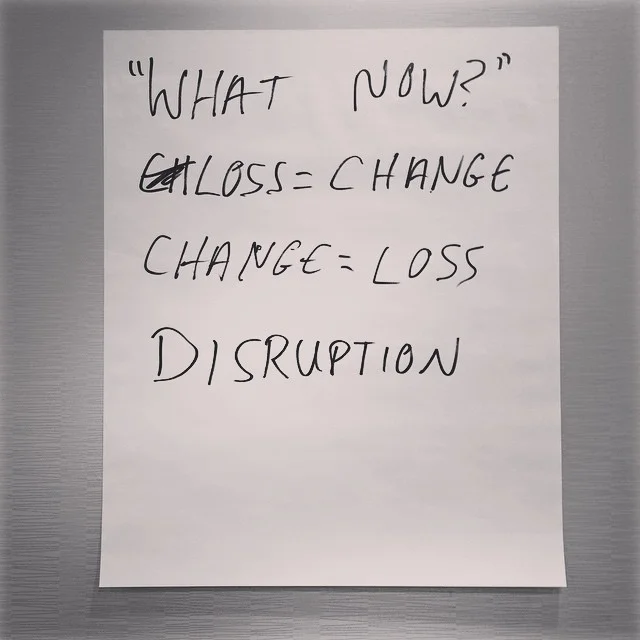 "WHAT NOW?"
LOSS = CHANGE
CHANGE = LOSS
DISRUPTION